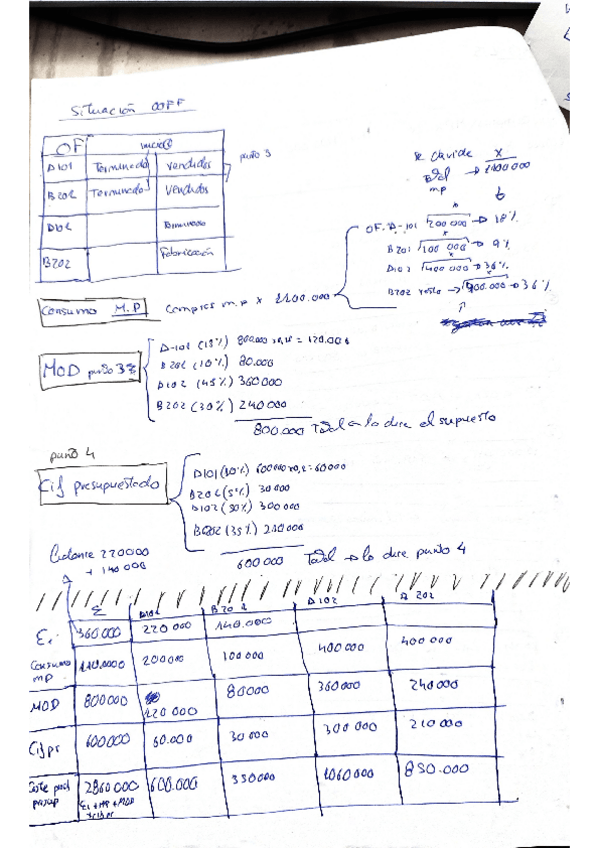 Situación OOFF
OF
inicio
D101 Terminado vendidos
B202 Terminado Vendidos
punto 3
D102 Terminado
B202 Fabricación
se divide X
Total m.p → 1100 000
OF. D-101 200 000 → 18%
B201 100 000 → 9%
D102 400 000 → 36%
B202 resto → 400.000 → 36%
Consumo M.P compras m.p x 1100.000
MOD punto 3
D-101 (15%) 800.000 x 0,15 = 120.000
B202 (10%) 80.000
D102 (45%) 360000
B202 (30%) 240000
800.000 Total lo dice el supuesto
punto 4
Cif presupuestado
D101 (10%) 600000 x 0,1 = 60000
B201 (5%) 30 000
D102 (50%) 300 000
B202 (35%) 210000
600000 Total → lo dice punto 4
Balance 220000
+ 140 000
Σ D101 B201 D102 B202
Ei. 360 000 220 000 140.000
Consumo mp 1100000 200000 100 000 400 000 400 000
MOD 800000 120 000 80000 360000 240 000
Cif pr 600000 60.000 30 000 300 000 210 000
Coste prod presup 2860 000 600.000 350000 1060 000 850.000
Ei + MP + MOD